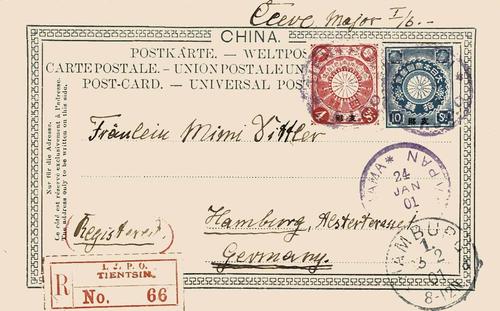 Major I/6.-
CHINA.
POSTKARTE. — WELTPOS
CARTE POSTALE. — UNION POSTALE UN
POST-CARD. — UNIVERSAL POS
4 Sn
10 Sn
支那
支那
Nur für die Adresse.
Ce côté est réservé exclusivement à l'adresse.
The address only to be written on this side.
Fräulein Mimi
24
JAN
01
JAPAN
Registered.
Hamburg,
Germany.
HAMBURG
1
5.2
01
8-12N
I. J. P. O.
TIENTSIN
R
No. 66